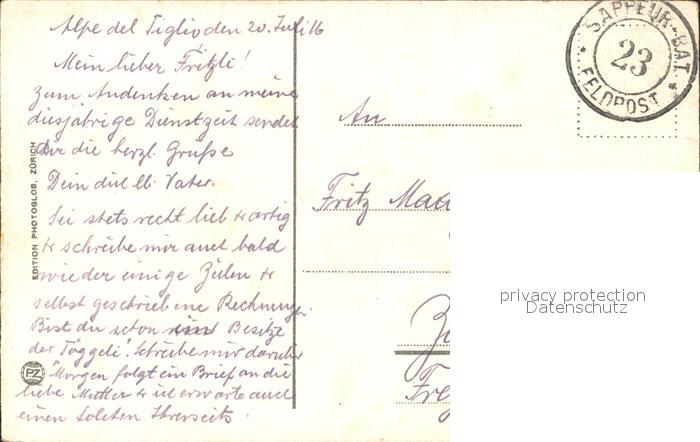 Alpe del Tiglio den 20. Juli 16
Mein lieber Fritzli!
Zum Andenken an meine
diesjährige Dienstzeit sendet
Dir die herzl. Grüße
Dein dich lb. Vater.
Sei stets recht lieb & artig
& schreibe mir auch bald
wieder einige Zeilen &
selbst geschriebene Rechnungen.
Bist du schon im Besitze
der Töggeli? Schreibe mir darüber
Morgen folgt ein Brief an die
liebe Mutter & ich erwarte auch
einen solchen Ihrerseits.
EDITION PHOTOGLOB, ZÜRICH
PZ
SAPPEUR-BAT.
23
FELDPOST
An
Fritz
privacy protection
Datenschutz